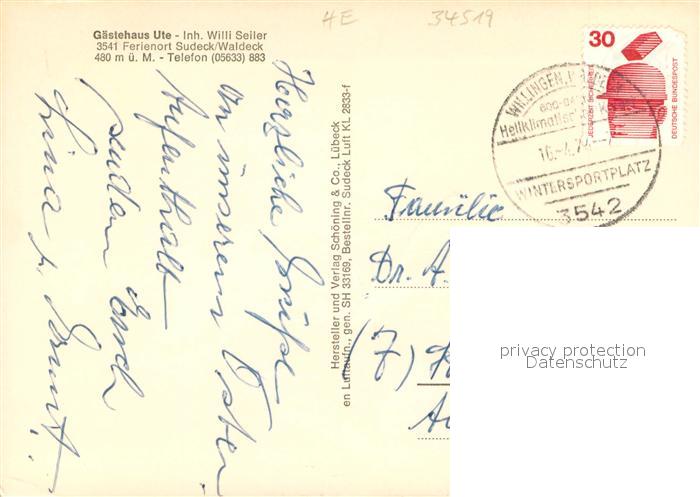 HE 34519
Gästehaus Ute - Inh. Willi Seiler
3541 Ferienort Sudeck/Waldeck
480 m ü. M. - Telefon (05633) 883
Herzliche Grüße
von unserem Oster
Aufenthalt
senden Euch
Hersteller und Verlag Schöning & Co., Lübeck
en Luftaufn., gen. SH 33169, Bestellnr. Sudeck Luft KL 2833-f
30
JEDERZEIT SICHERHEIT
DEUTSCHE BUNDESPOST
WILLINGEN
Heilklimatischer
16.-4.
WINTERSPORTPLATZ
3542
Familie
Dr. A.
(7)
privacy protection
Datenschutz